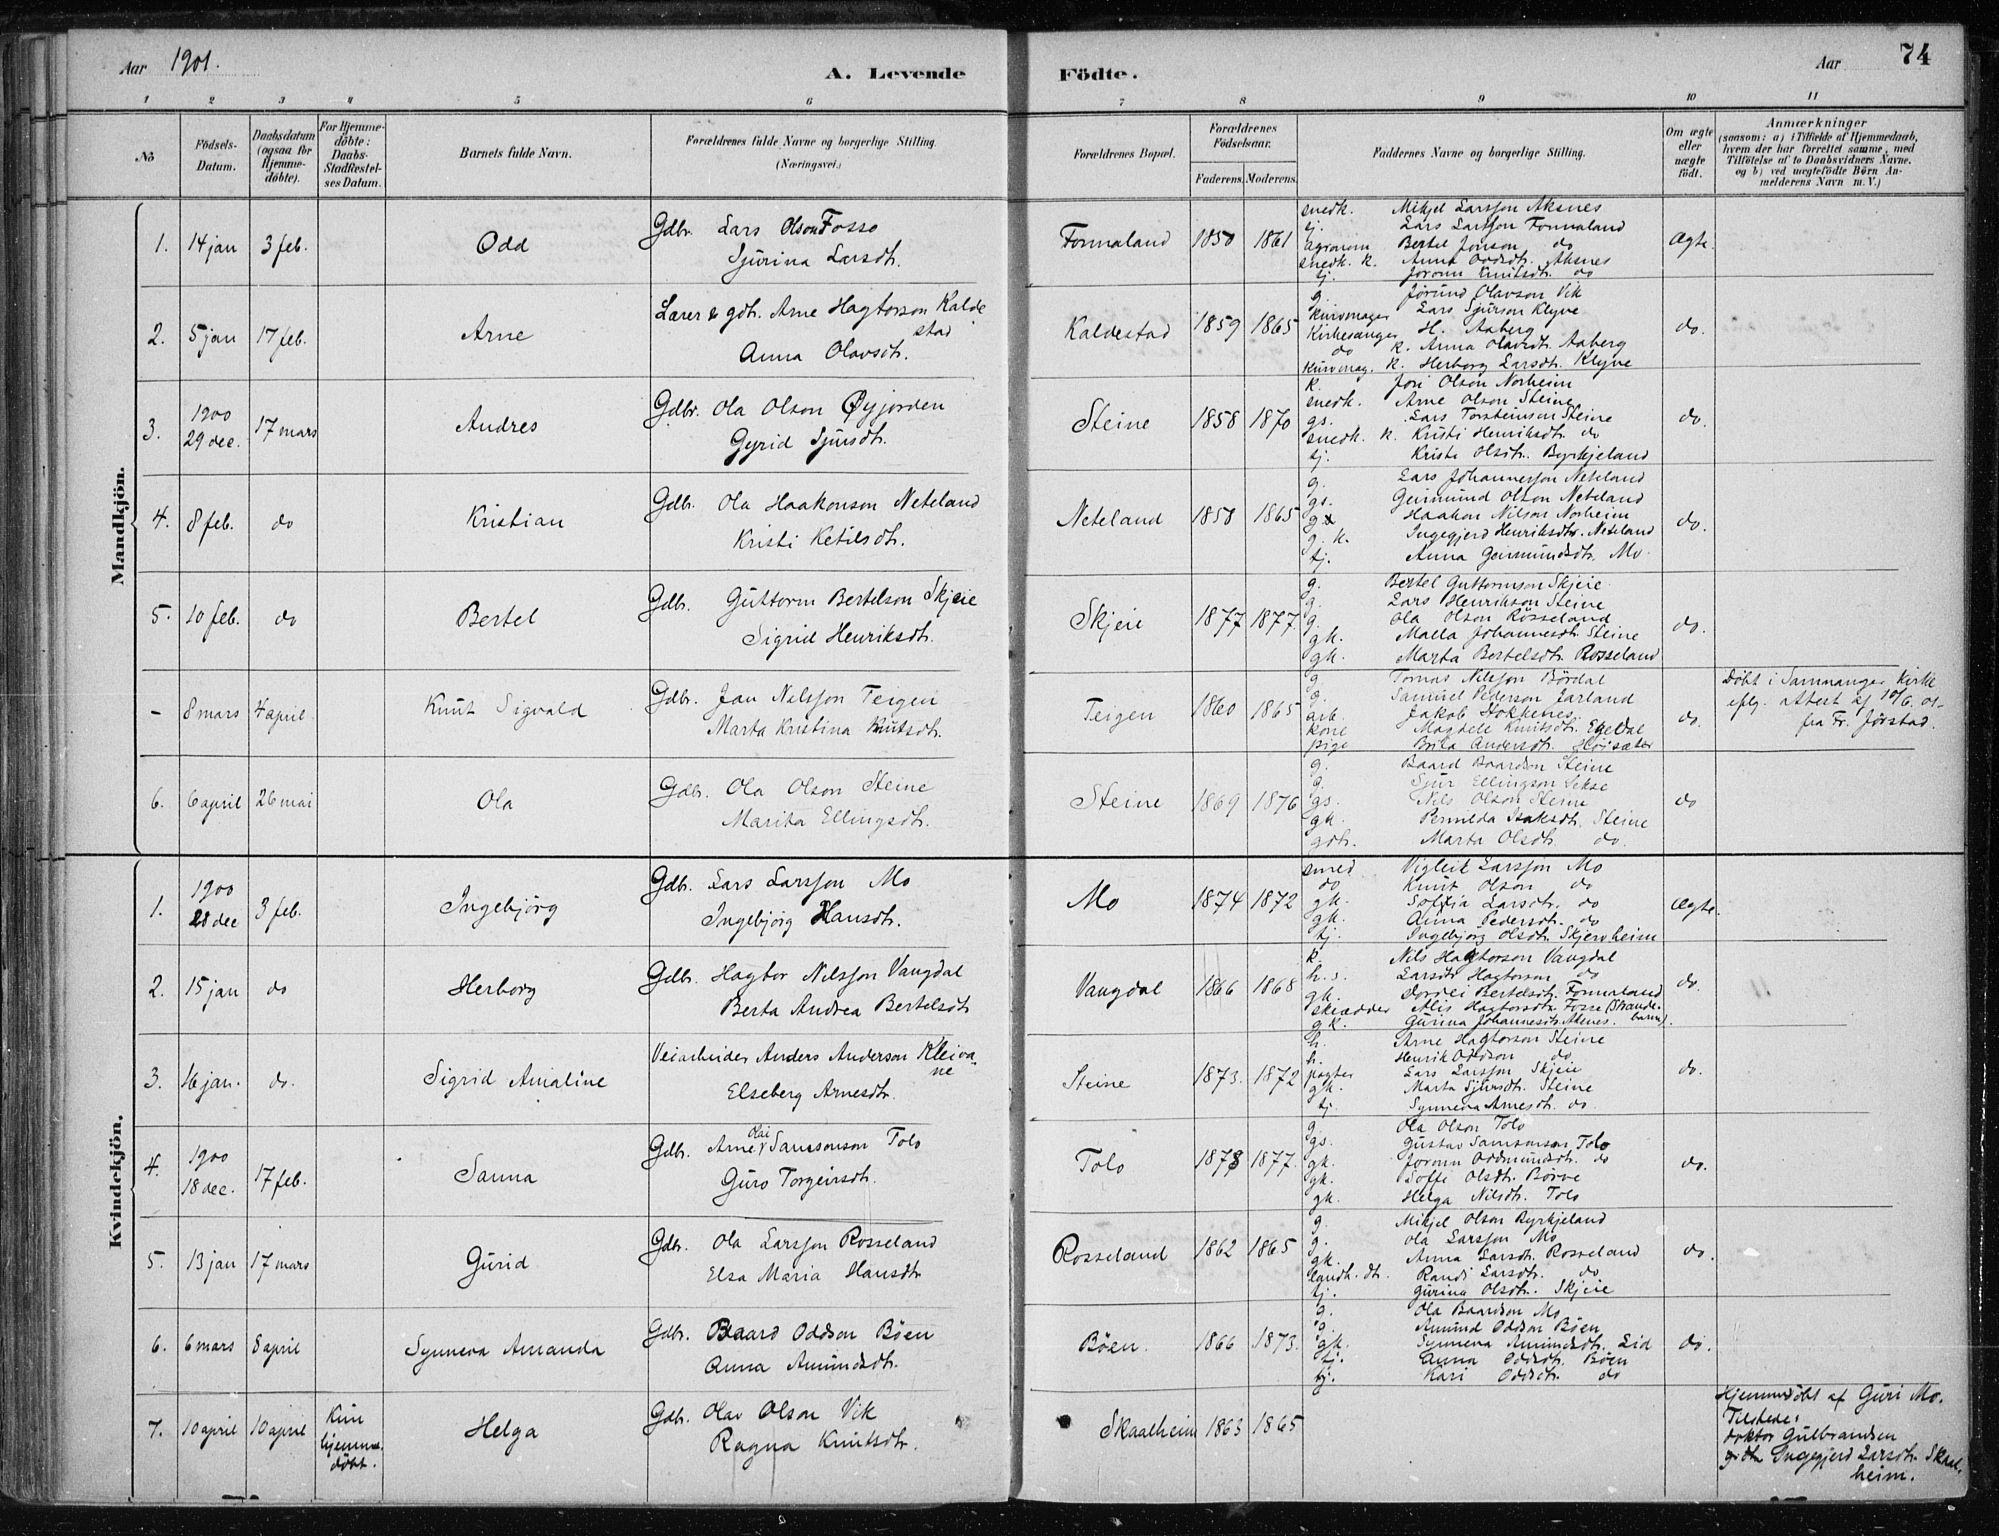 Aar 1901.
A. Levende
Födte.
Aar
74
1 2 3 4 5 6 7 8 9 10 11
No
Födsels-
Datum.
Daabsdatum
(ogsaa for
Hjemme-
döbte).
For Hjemme-
döbte:
Daabs-
Stadfæstel-
ses Datum.
Barnets fulde Navn.
Forældrenes fulde Navne og borgerlige Stilling.
(Næringsvei.)
Forældrenes Bopæl.
Forældrenes
Födselsaar.
Faderens. Moderens.
Faddernes Navne og borgerlige Stilling.
Om ægte
eller
uægte
födt.
Anmærkninger
(saasom: a) i Tilfælde af Hjemmedaab,
hvem der har forrettet samme, med
Tilföielse af to Daabsvidners Navne.
og b) ved uægtefödte Börn An-
melderens Navn m. V.)
Mandkjön.
1. 14 jan 3 feb. Odd
Gdbr. Lars Olson Fosso
Sjurina Larsdtr.
Fonnaland 1850 1861
snedk. Mikjel Larsson Aksnes
tj. Lars Larsson Fonnaland
agronom Bertel Jonson do
snedk. k. Anna Oddsdtr. Aksnes
tj. Joronn Knutsdtr. do
Ægte.
2. 5 jan 17 feb. Arne
Lærer & gdbr. Arne Hagtorson Kalde
stad
Anna Olavsdtr.
Kaldestad 1859 1865
g. Jørund Olavson Vik
Kurvmager Lars Sjurson Klyve
Kirkesanger H. Aaberg
do k. Anna Olavsdtr. Aaberg
Kurvmag. k. Herborg Larsdtr. Klyve
do.
3. 1900
29 dec. 17 mars Andres
Gdbr. Ola Olson Øyjorden
Gyrid Sjursdtr.
Steine 1858 1870
k. Jon Olson Norheim
snedk. Arne Olson Steine
gs. Lars Torsteinson Steine
snedk. k. Kristi Henriksdtr. do
tj. Kristi Olsdtr. Byrkjeland
do.
4. 8 feb. do Kristian
Gdbr. Ola Haakonson Neteland
Kristi Ketilsdtr.
Neteland 1850 1865
g. Lars Johannesson Neteland
gs. Geirmund Olson Neteland
Haakon Nilson Norheim
g. k. Ingegjerd Henriksdtr. Neteland
tj. Anna Geirmundsdtr. Mo.
do.
5. 10 feb. do Bertel
Gdbr. Guttorm Bertelson Skjeie
Sigrid Henriksdtr.
Skjeie 1877 1877
g. Bertel Guttormson Skjeie
g. Lars Henrikson Steine
g. Ola Olson Rosseland
gk. Maela Johannesdtr. Steine
gk. Marta Bertelsdtr. Rosseland
do.
- 8 mars 4 april Knut Sigvald
Gdbr. Jan Nilsson Teigen
Marta Kristina Knutsdtr.
Teigen 1860 1865
g. Tomas Nilsson Børdal
g. Samuel Pederson Jarland
arb. Jakob Stokkenes
kone Magdele Knutsdtr. Ekedal
pige Brita Andersdtr. Høisæter
do.
Døbt i Samnanger kirke
iflg. attest af 10/6. 01
fra Fr. Jörstad.
6. 6 april 26 mai Ola
Gdbr. Ola Olson Steine
Marita Ellingsdtr.
Steine 1869 1876
g. Baard Baardson Steine
g. Sjur Ellingson Sekse
gs. Nils Olson Steine
gk. Pernilda Isaksdtr. Steine
gdtr. Marta Olsdtr. do.
do
Kvindekjön.
1. 1900
28 dec 3 feb. Ingebjörg
Gdbr. Lars Larsson Mo
Ingebjörg Hansdtr.
Mo 1874 1872
smed Vigleik Larsson Mo
do Knut Olson do
gk. Larsdtr. do
gk. Anna Pedersdtr. do
tj. Ingebjörg Olsdtr. Skjervheim
Ægte.
2. 15 jan do Herborg
Gdbr. Hagtor Nilsson Vangdal
Berta Andrea Bertelsdtr
Vangdal 1866 1868
k. Nils Hagtorson Vangdal
h. s. Hagtorson do
gk. Bertelsdtr. Fonnaland
skrædder Hagtorsdtr. Fosse (Strande-
barm).
gk. Gurina Johannesdtr. Aknes.
do.
3. 16 jan. do. Sigrid Amaline
Veiarbeider Anders Anderson Kleiva-
ne
Elseberg Arnesdtr.
Steine 1873. 1872
h. Arne Hagtorson Steine
h. Henrik Oddson do
pagter Lars Larsson Skjeie
gk. Marta Sjursdtr. Steine
tj. Synneva Arnesdtr. do.
do.
4. 1900
18 dec. 17 feb. Sanna
Gdbr. Arne Olai Samsonson Tolo
Guro Torgeirsdtr.
Tolo 1873 1877.
g. Ola Olson Tolo
gs. Gustav Samsonson Tolo
gk. Joronn Oddmundsdtr. do
gk. Soffi Olsdtr. Børve
gk. Helga Nilsdtr. Tolo
do.
5. 13 jan 17 mars Gurid
Gdbr. Ola Larsson Rosseland
Elsa Maria Hansdtr
Rosseland 1862 1865
g. Mikjel Olson Byrkjeland
g. Ola Larsson Mo
gk. Anna Larsdtr. Rosseland
landh. dtr. Randi Larsdtr. do
tj. Gurina Olsdtr. Skjeie
do.
6. 6 mars 8 april Synneva Amanda
Gdbr. Baard Oddson Böen
Anna Amundsdtr.
Böen. 1866 1873.
g. Ola Baardson Mo
g. Amund Oddson Böen
gk. Synneva Amundsdtr. Lid
tj. Anna Oddsdtr. Böen
tj. Kari Oddsdtr. do
do.
7. 10 april 10 april Kun
hjemme-
døbt. Helga
Gdbr. Olav Olson Vik
Ragna Knutsdtr.
Skaalheim 1863 1865
Hjemmedøbt af Guri Mo.
Tilstede:
doktor Gulbrandsen
Ingegjerd Larsdtr. Skaal-
heim.